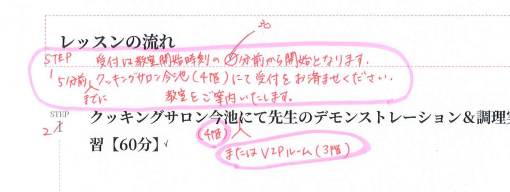 20
レッスンの流れ
STEP 受付は教室開始時刻の分前から開始となります.
1 5分前までに クッキングサロン今池(4階)にて受付をお済ませください.
教室をご案内いたします.
STEP
2 1 クッキングサロン今池にて先生のデモンストレーション&調理実
(4階) または VIPルーム(3階)
習【60分】